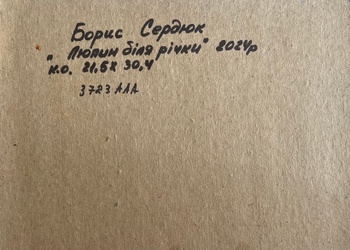 Борис Сердюк
"Люпин біля річки" 2024р
к.о. 21,5х 30,4
3723 ААА